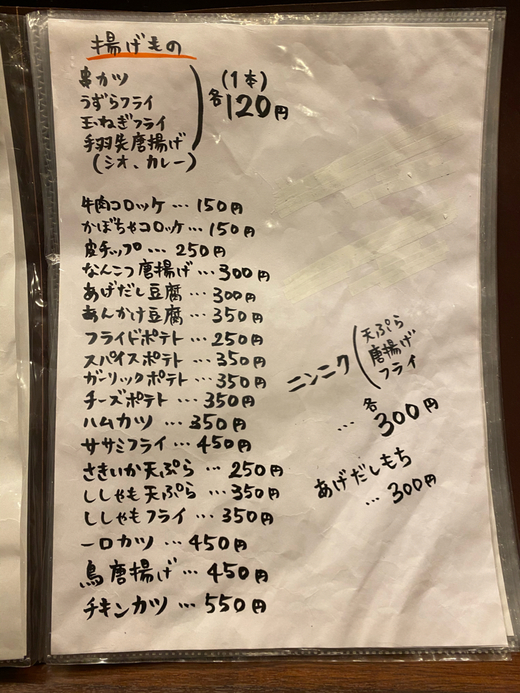 揚げもの
串カツ
うずらフライ
玉ねぎフライ
手羽先唐揚げ
(シオ、カレー)
(1本)
各120円
牛肉コロッケ…150円
かぼちゃコロッケ…150円
皮チップ…250円
なんこつ唐揚げ…300円
あげだし豆腐…300円
あんかけ豆腐…350円
フライドポテト…250円
スパイスポテト…350円
ガーリックポテト…350円
チーズポテト…350円
ハムカツ…350円
ササミフライ…450円
さきいか天ぷら…250円
ししゃも天ぷら…350円
ししゃもフライ…350円
一口カツ…450円
鳥唐揚げ…450円
チキンカツ…550円
ニンニク
天ぷら
唐揚げ
フライ
各
…300円
あげだしもち
…300円